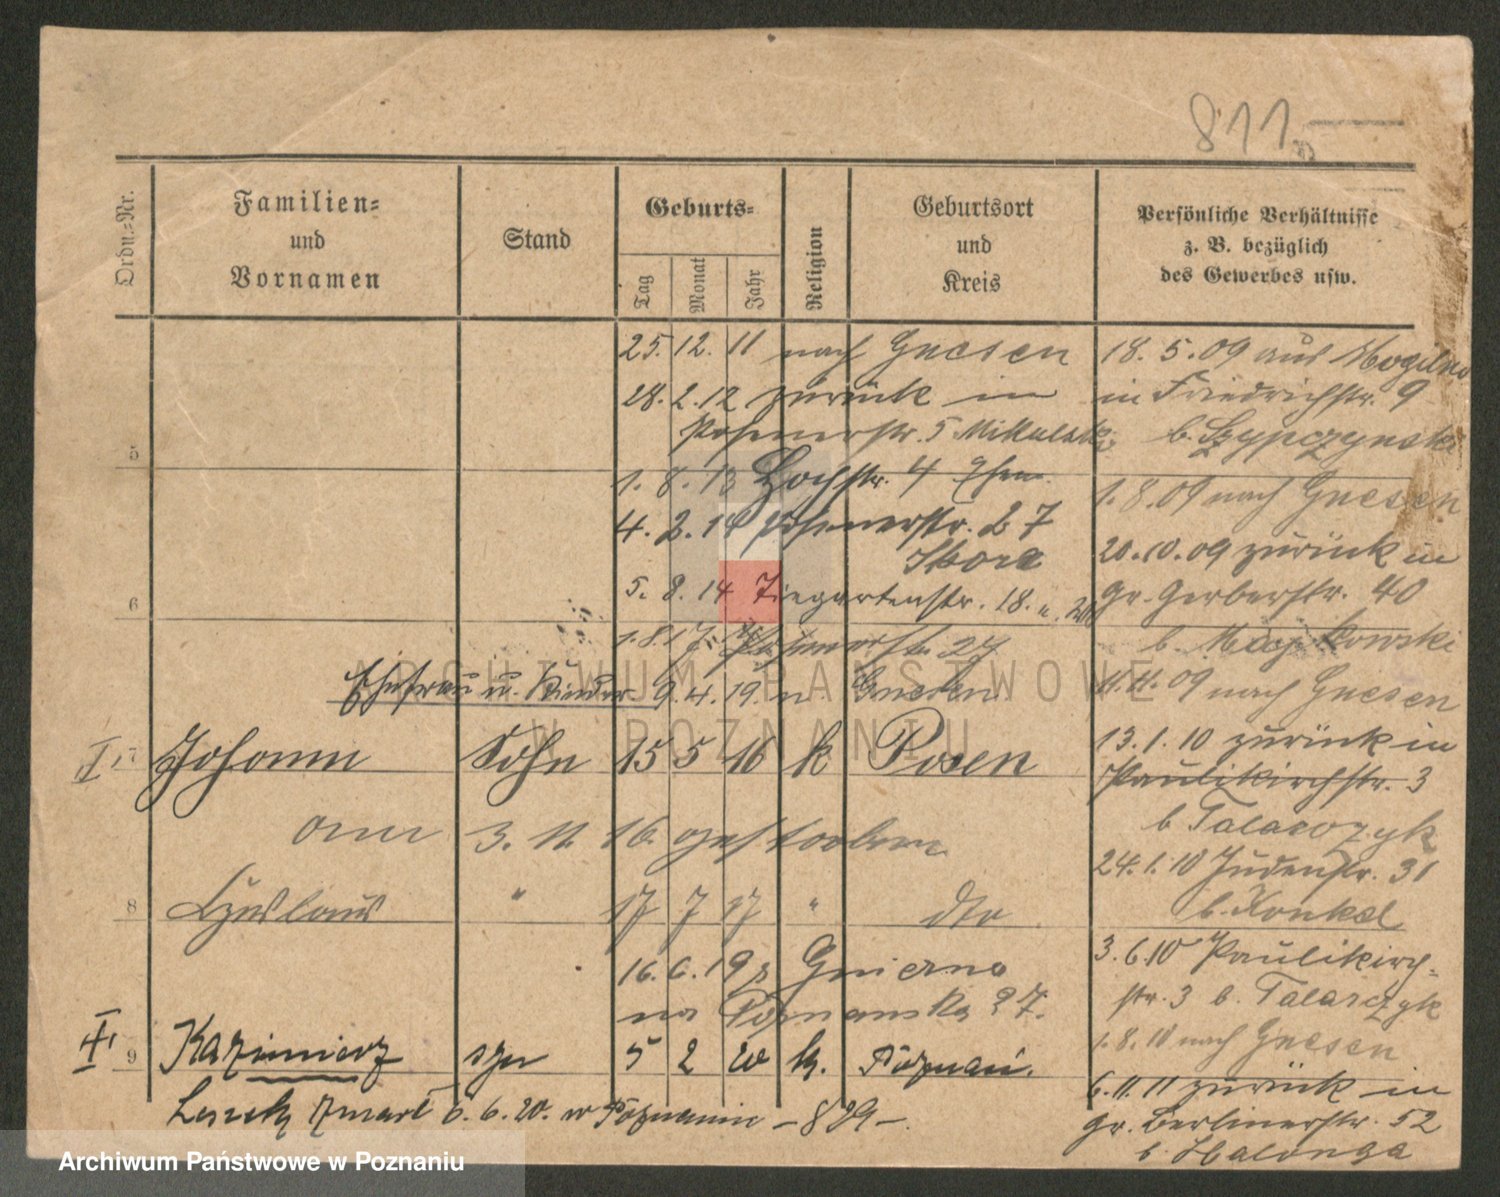 811
Ordn.-Nr.
Familien-
und
Vornamen
Stand
Geburts-
Tag
Monat
Jahr
Religion
Geburtsort
und
Kreis
Persönliche Verhältnisse
z. B. bezüglich
des Gewerbes usw.
25. 12. 11 nach Gnesen
28. 2. 12 zurück in
Posenerstr. 5 Mikulski
5
1. 8. 13 Hochstr. 4
4. 2. 14 Posenerstr. 27
Skora
6
5. 8. 14 Tiergartenstr. 18. u.
1. 8. 17. Posenerstr. 27
Ehefrau u. Kinder 9. 4. 19. n. Gnesen
I 7 Johann Sohn 15 5 16 k Posen
am 3. 11. 16. gestorben
8 Czeslaus " 17 7 17 " dto
16. 6. 19 z Gniezno
na Poznanska 27.
II 9 Kazimierz syn 5 2 20 k. Poznań.
Leszek zmarł 6. 6. 20. w Poznaniu – 829 –.
18. 5. 09 aus Mogilno
in Friedrichstr. 9
b. Szypczynski
1. 8. 09 nach Gnesen
20. 10. 09 zurück in
Gr. Gerberstr. 40
b. Majkowski
11. 11. 09 nach Gnesen
13. 1. 10 zurück in
Paulikirchstr. 3
b Talarczyk
24. 1. 10 Judenstr. 31
b. Kunkel
3. 6. 10 Paulikirch-
str. 3 b. Talarczyk
1. 8. 10 nach Gnesen
6. 11. 11 zurück in
Gr. Berlinerstr. 52
b. Halonga
ARCHIWUM PAŃSTWOWE
W POZNANIU
Archiwum Państwowe w Poznaniu